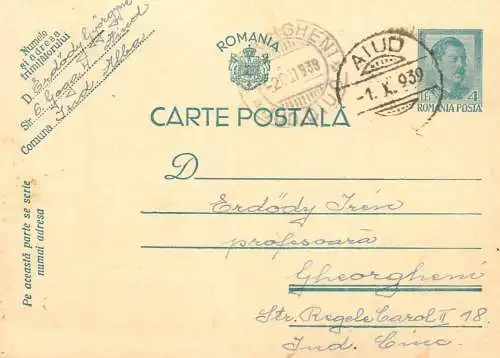 Numele
și adresa
trimițătorului
D. Erdődy György
Str.
Comuna
Jud. Alba
ROMANIA
GHEORGHENI
939
AIUD
-1. X. 939
4
ROMANIA POSTA
CARTE POSTALĂ
D Erdődy Irén
profesoară
Gheorgheni
Str. Regele Carol II 18.
Jud. Ciuc
Pe această parte se scrie
numai adresa